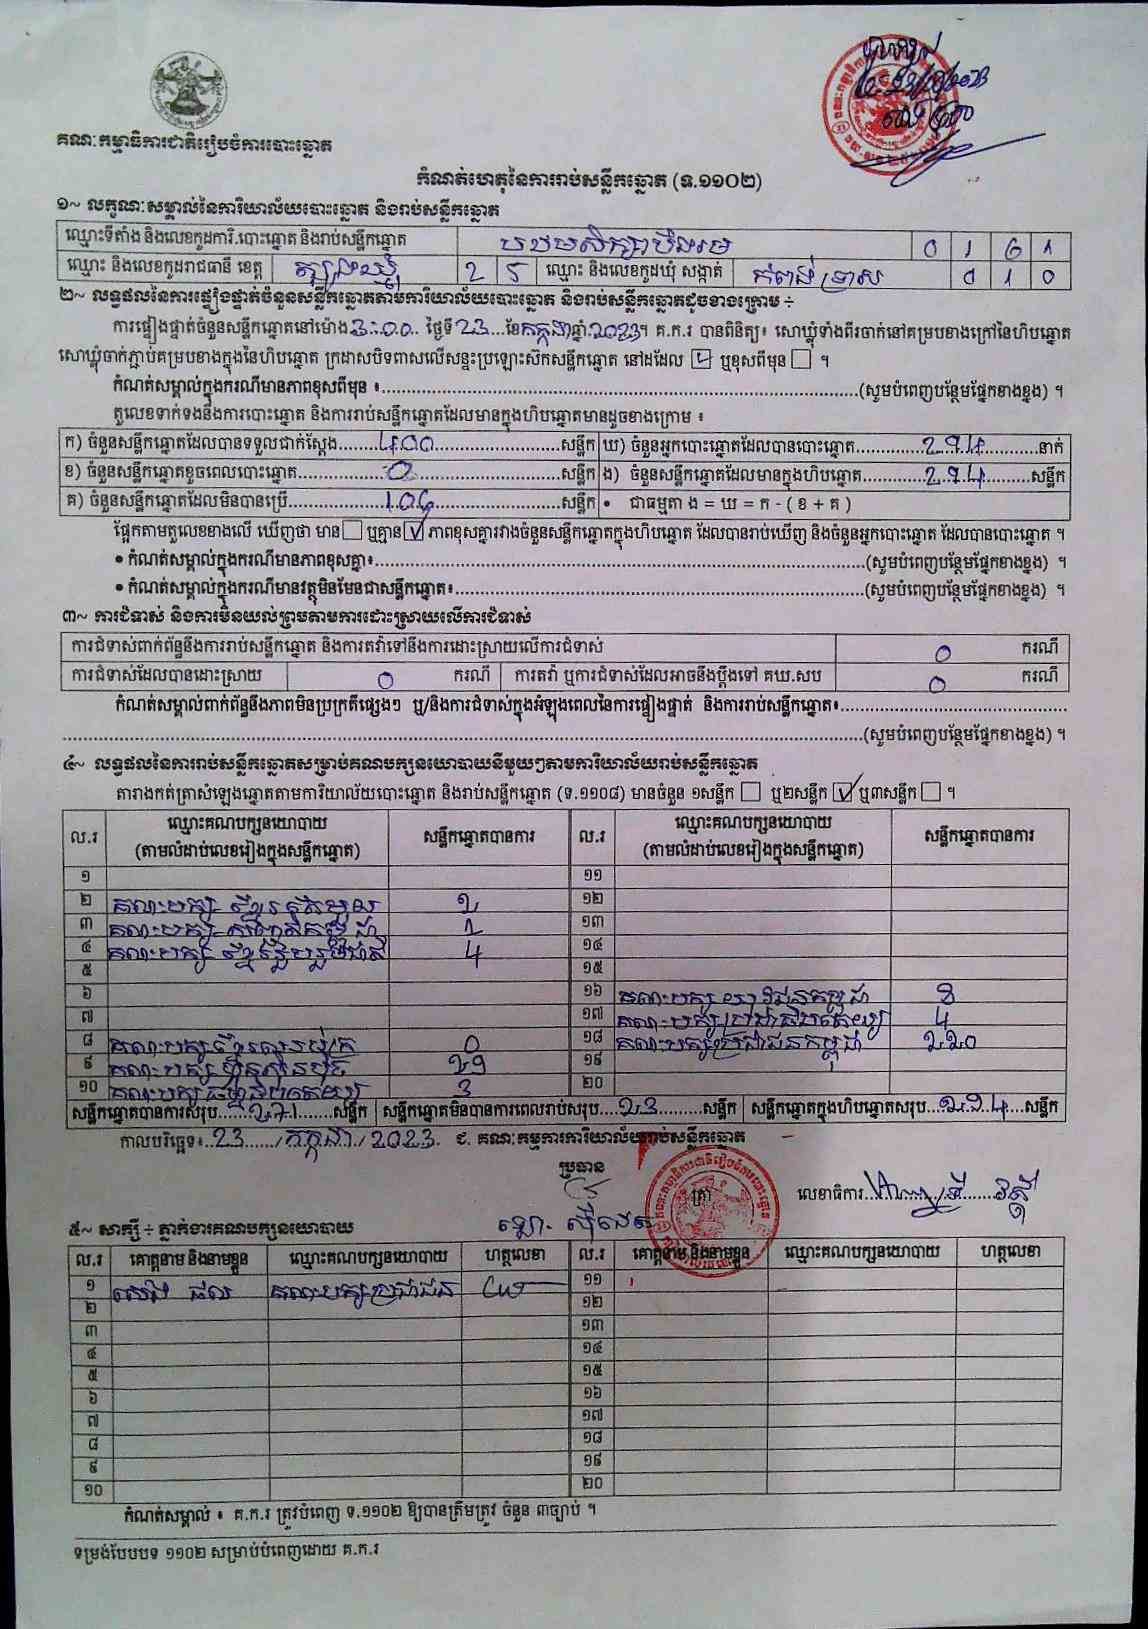 គណៈកម្មាធិការជាតិរៀបចំការបោះឆ្នោត
កំណត់ហេតុនៃការរាប់សន្លឹកឆ្នោត (ទ.១១០២)
១~ លក្ខណៈសម្គាល់នៃការិយាល័យបោះឆ្នោត និងរាប់សន្លឹកឆ្នោត
ឈ្មោះទីតាំង និងលេខកូដការិ.បោះឆ្នោត និងរាប់សន្លឹកឆ្នោត បឋមសិក្សា 0 1 6 1
ឈ្មោះ និងលេខកូដរាជធានី ខេត្ត ត្បូងឃ្មុំ 2 5 ឈ្មោះ និងលេខកូដឃុំ សង្កាត់ កំពង់ទ្រាស 0 1 0
២~ លទ្ធផលនៃការផ្ទៀងផ្ទាត់ចំនួនសន្លឹកឆ្នោតតាមការិយាល័យបោះឆ្នោត និងរាប់សន្លឹកឆ្នោតដូចខាងក្រោម ÷
ការផ្ទៀងផ្ទាត់ចំនួនសន្លឹកឆ្នោតនៅម៉ោង 3:00 ថ្ងៃទី 23 ខែ កក្កដា ឆ្នាំ 2023 ។ គ.ក.រ បានពិនិត្យ៖ សោឃ្លុំទាំងពីរចាក់នៅគម្របខាងក្រៅនៃហិបឆ្នោត
សោឃ្លុំចាក់ភ្ជាប់គម្របខាងក្នុងនៃហិបឆ្នោត ក្រដាសបិទពាសលើសន្ទះប្រឡោះស៊កសន្លឹកឆ្នោត នៅដដែល ☑ ឬខុសពីមុន ☐ ។
កំណត់សម្គាល់ក្នុងករណីមានភាពខុសពីមុន ៖ (សូមបំពេញបន្ថែមផ្នែកខាងខ្នង) ។
តួលេខទាក់ទងនឹងការបោះឆ្នោត និងការរាប់សន្លឹកឆ្នោតដែលមានក្នុងហិបឆ្នោតមានដូចខាងក្រោម ៖
ក) ចំនួនសន្លឹកឆ្នោតដែលបានទទួលជាក់ស្តែង 400 សន្លឹក ឃ) ចំនួនអ្នកបោះឆ្នោតដែលបានបោះឆ្នោត 294 នាក់
ខ) ចំនួនសន្លឹកឆ្នោតខូចពេលបោះឆ្នោត 0 សន្លឹក ង) ចំនួនសន្លឹកឆ្នោតដែលមានក្នុងហិបឆ្នោត 294 សន្លឹក
គ) ចំនួនសន្លឹកឆ្នោតដែលមិនបានប្រើ 106 សន្លឹក • ជាធម្មតា ង = ឃ = ក - ( ខ + គ )
ផ្អែកតាមតួលេខខាងលើ ឃើញថា មាន ☐ ឬគ្មាន ☑ ភាពខុសគ្នារវាងចំនួនសន្លឹកឆ្នោតក្នុងហិបឆ្នោត ដែលបានរាប់ឃើញ និងចំនួនអ្នកបោះឆ្នោត ដែលបានបោះឆ្នោត ។
• កំណត់សម្គាល់ក្នុងករណីមានភាពខុសគ្នា៖ (សូមបំពេញបន្ថែមផ្នែកខាងខ្នង) ។
• កំណត់សម្គាល់ក្នុងករណីមានវត្ថុមិនមែនជាសន្លឹកឆ្នោត៖ (សូមបំពេញបន្ថែមផ្នែកខាងខ្នង) ។
៣~ ការជំទាស់ និងការមិនយល់ព្រមតាមការដោះស្រាយលើការជំទាស់
ការជំទាស់ពាក់ព័ន្ធនឹងការរាប់សន្លឹកឆ្នោត និងការតវ៉ាទៅនឹងការដោះស្រាយលើការជំទាស់ 0 ករណី
ការជំទាស់ដែលបានដោះស្រាយ 0 ករណី ការតវ៉ា ឬការជំទាស់ដែលអាចនឹងប្តឹងទៅ គឃ.សប 0 ករណី
កំណត់សម្គាល់ពាក់ព័ន្ធនឹងភាពមិនប្រក្រតីផ្សេងៗ ឬ/និងការជំទាស់ក្នុងអំឡុងពេលនៃការផ្ទៀងផ្ទាត់ និងការរាប់សន្លឹកឆ្នោត៖
(សូមបំពេញបន្ថែមផ្នែកខាងខ្នង) ។
៤~ លទ្ធផលនៃការរាប់សន្លឹកឆ្នោតសម្រាប់គណបក្សនយោបាយនីមួយៗតាមការិយាល័យរាប់សន្លឹកឆ្នោត
តារាងកត់ត្រាសំឡេងឆ្នោតតាមការិយាល័យបោះឆ្នោត និងរាប់សន្លឹកឆ្នោត (ទ.១១០៨) មានចំនួន ១សន្លឹក ☐ ឬ២សន្លឹក ☑ ឬ៣សន្លឹក ☐ ។
ល.រ ឈ្មោះគណបក្សនយោបាយ សន្លឹកឆ្នោតបានការ ល.រ ឈ្មោះគណបក្សនយោបាយ សន្លឹកឆ្នោតបានការ
(តាមលំដាប់លេខរៀងក្នុងសន្លឹកឆ្នោត) (តាមលំដាប់លេខរៀងក្នុងសន្លឹកឆ្នោត)
១ ១១
២ គណបក្ស ខ្មែរ 2 ១២
៣ គណបក្ស 1 ១៣
៤ គណបក្ស ខ្មែរ 4 ១៤
៥ ១៥
៦ ១៦ គណបក្ស យុវជនកម្ពុជា 8
៧ ១៧ គណបក្ស ប្រជាធិបតេយ្យ 4
៨ គណបក្ស ខ្មែរ 0 ១៨ គណបក្ស ប្រជាជនកម្ពុជា 220
៩ គណបក្ស ហ្វ៊ុនស៊ិនប៉ិច 29 ១៩
១០ គណបក្ស 3 ២០
សន្លឹកឆ្នោតបានការសរុប 271 សន្លឹក សន្លឹកឆ្នោតមិនបានការពេលរាប់សរុប 23 សន្លឹក សន្លឹកឆ្នោតក្នុងហិបឆ្នោតសរុប 294 សន្លឹក
កាលបរិច្ឆេទ៖ 23 / កក្កដា / 2023 ជ. គណៈកម្មការការិយាល័យរាប់សន្លឹកឆ្នោត
ប្រធាន ត្រា លេខាធិការ
៥~ សាក្សី ÷ ភ្នាក់ងារគណបក្សនយោបាយ
ល.រ គោត្តនាម និងនាមខ្លួន ឈ្មោះគណបក្សនយោបាយ ហត្ថលេខា ល.រ គោត្តនាម និងនាមខ្លួន ឈ្មោះគណបក្សនយោបាយ ហត្ថលេខា
១ ផល គណបក្សប្រជាជន ១១
២ ១២
៣ ១៣
៤ ១៤
៥ ១៥
៦ ១៦
៧ ១៧
៨ ១៨
៩ ១៩
១០ ២០
កំណត់សម្គាល់ ៖ គ.ក.រ ត្រូវបំពេញ ទ.១១០២ ឱ្យបានត្រឹមត្រូវ ចំនួន ៣ច្បាប់ ។
ទម្រង់បែបបទ ១១០២ សម្រាប់បំពេញដោយ គ.ក.រ